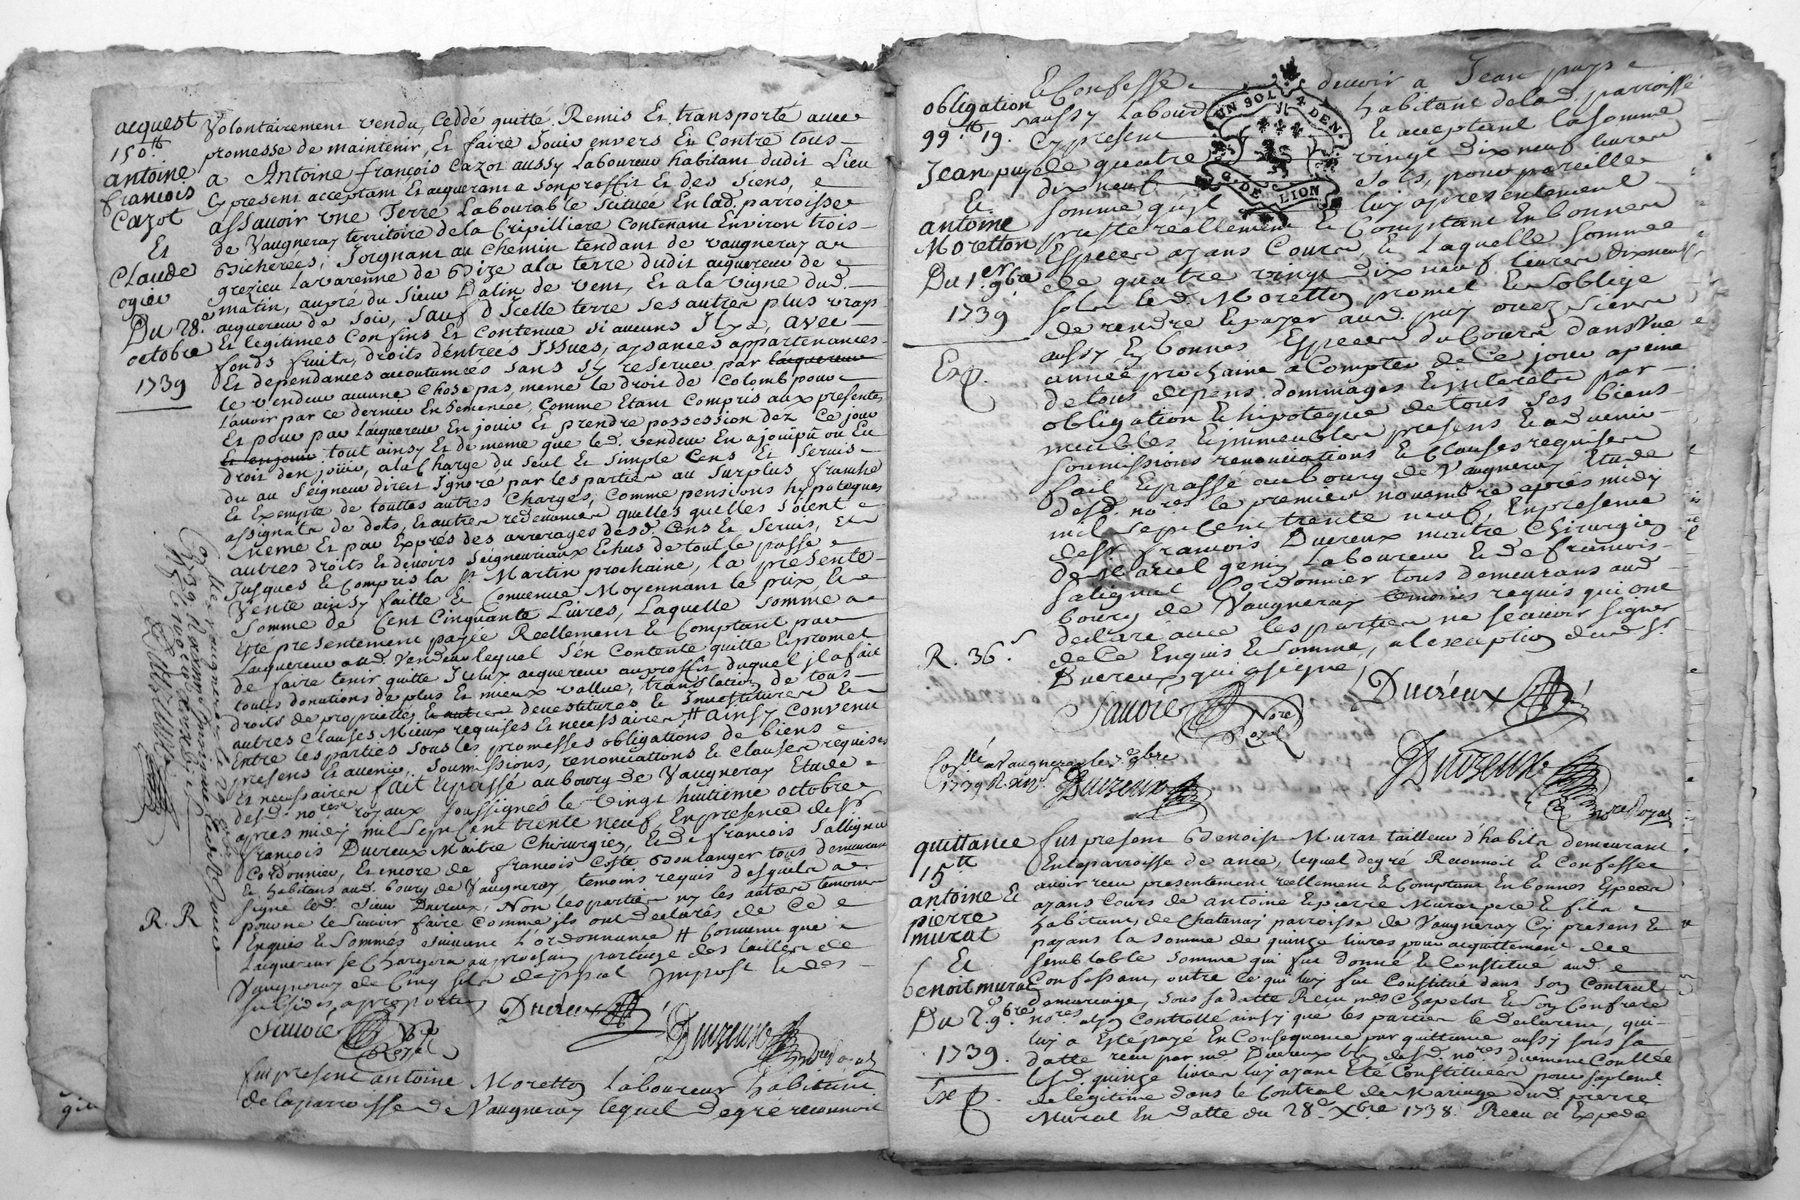 acquest
150.tt
antoine
françois
Cazot
Et
Claude
ogier
Du 28.e
octobre
1739
Volontairement vendu, Ceddé quitté Remis Et transporté avec
promesse de maintenir, Et faire Jouir envers Et Contre tous
a Antoine françois Cazot aussy Laboureur habitant dudit Lieu
Cy present acceptant Et acquerant a son proffit Et des Siens,
assavoir une Terre Labourable Scituée En lad. parroisse
de Vaugneray territoire de la Crepilliere Contenant Environ trois
Bicherées, Joignant au Chemin tendant de vaugneray au
grezieu Lavarenne de Bize a la terre dudit acquereur de
matin, au pré du Sieur Dalin de vent, Et a la vigne dud.
acquereur de Soir, Sauf d'Icelle terre Ses autres plus vrays
Et legitimes Confins Et Contenue si aucuns Il y a, avec
fonds fruits, droits d'entrées Issues, aysances appartenances
Et dependances accoutumées sans s'y reserver par lacquereur
le vendeur aucune Chose pas meme le droit de Colomb pour
L'avoir par ce dernier Ensemencée, Comme Etant Compris aux presentes
Et pour par L'acquereur En jouir Et prendre possession dez Ce jour
Et en jouir tout ainsy Et de meme que led. vendeur En a joüy ou Eu
droit d'en joüir, a la Charge du Seul Et Simple Cens Et Servis
du au Seigneur direct Ignoré par les parties au Surplus franche
Et Exempte de touttes autres Charges, Comme pensions hypoteques
assignats de dots, Et autres redevances quelles quelles Soient
meme Et par Exprès des arrerages desd. Cens Et Servis, Et
autres droits Et devoirs Seigneuriaux Echus de tout le passé
Jusques Et Compris la St Martin prochaine, la presente
Vente ainsy faitte Et Convenue Moyennant le prix Et
Somme de Cent Cinquante Livres, Laquelle Somme a
Eté presentement payée Reellement Et Comptant par
Lacquereur aud. Vendeur lequel s'en Contente quitte Et promet
de faire tenir quitte Iceluy acquereur au proffit duquel Il a fait
toutes donations de plus Et mieux vallue, translation de tous
droits de proprieté, Et autres devestitures, Et Investitures Et
autres Clauses Mieux requises Et necessaires # ainsy Convenu
Entre les parties Sous les promesses obligations de biens
presens Et avenir, Soumissions, renonciations Et Clauses requises
Et necessaires fait Et passé au bourg de Vaugneray Etude
desd. nores royaux Soussignés le vingt huitieme octobre
apres midy mil Sept Cent trente neuf En presence de Sr
françois Ducreux Maitre Chirurgien, Et de françois Salignat
Cordonnier, Et encore de françois Coste Boulanger tous demeurans
Et habitans aud. bourg de Vaugneray, temoins requis desquels a
signé led. Sieur Ducreux, Non les parties ny les autres temoins
pour ne le Scavoir faire Comme ils ont declarés de Ce
Enquis Et Sommés Suivant L'ordonnance # Convenu que
Lacquereur se Chargera au prochain partage des tailles de
Vaugneray de Cinq Sols de principal Impost Et des
subsides a proportion
R. R
Savoie Nore Royal
Ducreux
Ducreux nore Royal
fut present antoine Moretton Laboureur habitant
de la parroisse de Vaugneray lequel de gré reconnoit
obligation
99.tt 19.s
Jean puy
Et
antoine
Moretton
Du 1.er 9bre
1739
Exp.
Et Confesse devoir a Jean puys
aussy Laboureur habitant de lad. parroisse
Cy present Et acceptant la Somme
de quatre vingt dix neuf livres
dix neuf Sols, pour pareille
Somme qu'il luy a presentement
presté reellement Et Comptant En bonnes
Especes ayans Cours, Et Laquelle Somme
de quatre vingt dix neuf livres dix neuf
sols led. Moretton promet Et s'oblige
de rendre Et payer aud. puy ou ez Siens
aussy En bonnes Especes du Cours dans une
année prochaine a Compter de Ce jour a peine
de tous depens dommages Et interets par
obligation Et hipoteque de tous Ses biens
meubles Et immeubles presens Et a venir
soumissions renonciations Et Clauses requises
fait Et passé au bourg de Vaugneray Etude
desd. nores le premier novembre après midy
mil Sept Cent trente neuf, En presence
de Sr françois Ducreux maitre Chirurgien
de genin Laboureur Et de françois
Salignat Cordonnier tous demeurans aud.
bourg de Vaugneray temoins requis qui ont
declaré avec les parties ne sçavoir signer
de Ce Enquis Et Sommé, a l'exception dud. Sr
Ducreux qui a signé
R. 36.s
Savoie Nore Royal
Ducreux
Collé a Vaugneray le 7. 9bre
1739 R.
Ducreux
Ducreux nore Royal
quittance
15.tt
antoine Et
pierre
murat
Et
benoit murat
Du 2. 9bre
1739.
Exp.
fut present Benoist Murat tailleur d'habits demeurant
En la parroisse de ance, lequel de gré Reconnoit Et Confesse
avoir reçu presentement reellement Et Comptant En bonnes Especes
ayans Cours de antoine Et pierre Murat pere Et fils
habitans de Chatanay parroisse de Vaugneray Cy presens Et
payans la Somme de quinze livres pour acquittement de
semblable Somme qui fut donné Et Constitué aud.
Confessant, outre Ce qui luy fut Constitué dans Son Contrat
de mariage, Sous Sa datte Reçu mes Chapelot Et Son Confrere
nores aly Controllé ainsy que les parties le declarent, qui
luy a Eté payé En Consequence par quittance aussy sous sa
datte reçu par me Ducreux l'un desd. nores duement Contlée
lesd. quinze livres luy ayant Eté Constituées pour Supplement
de legitime dans le Contrat de Mariage dud. pierre
Murat En datte du 28.e Xbre 1738. Reçu Et Expedié
UN SOL 4 DEN.
G. DE LION